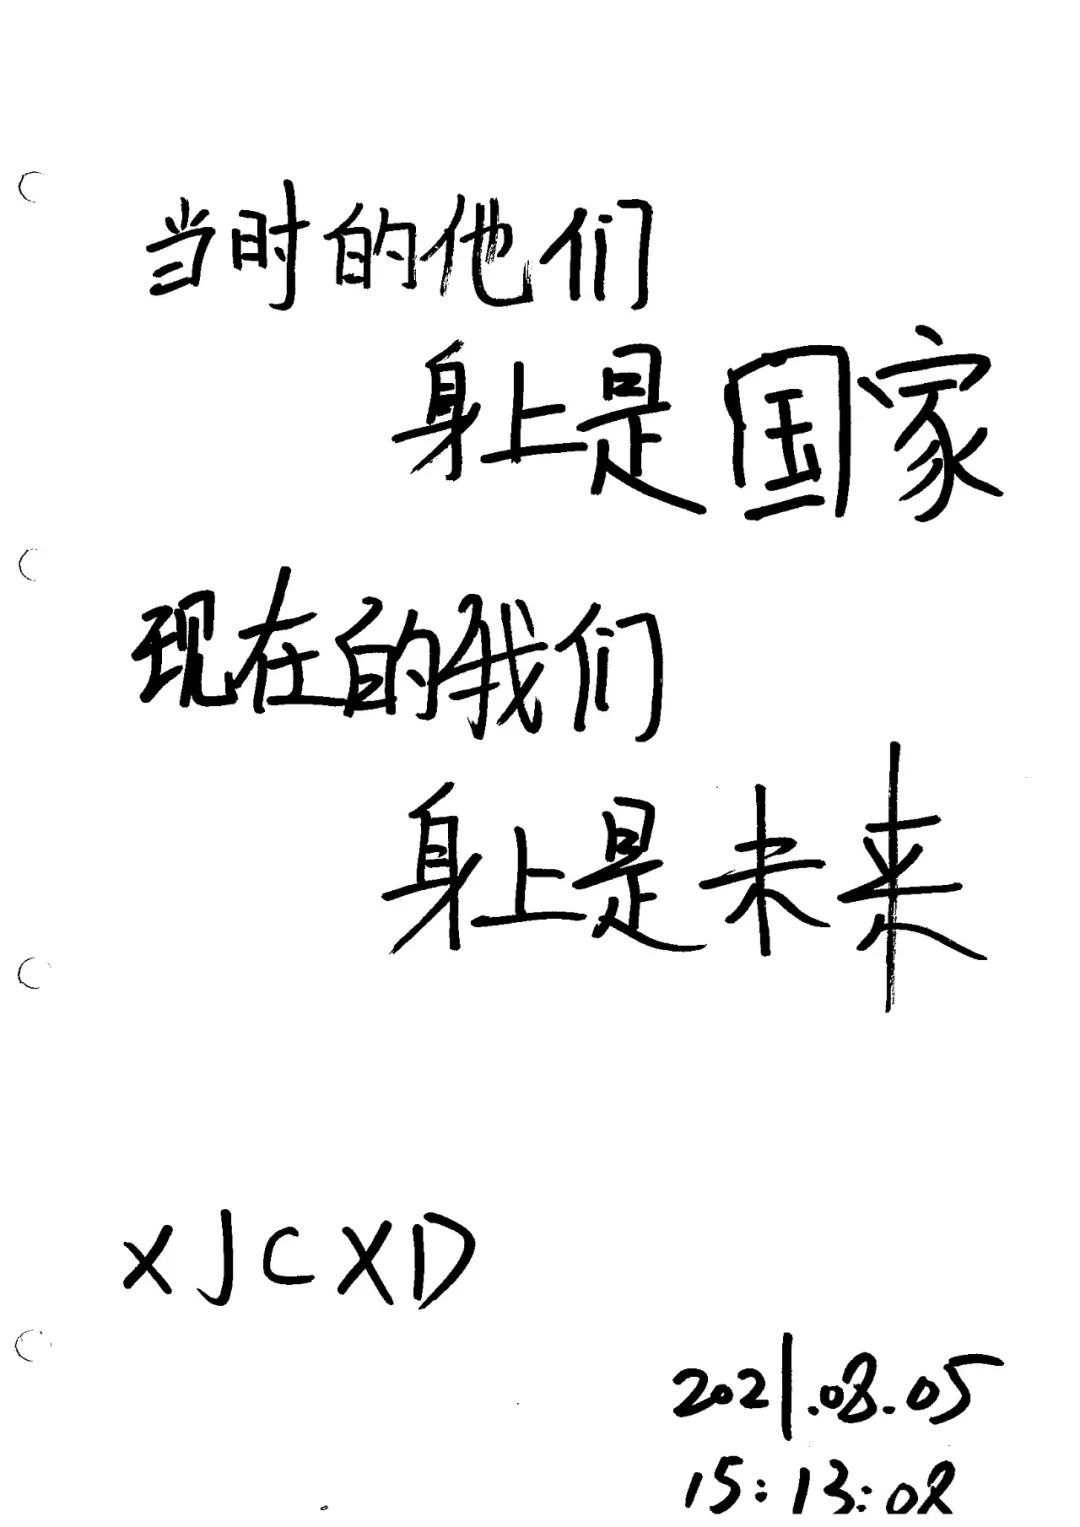 当时的他们
身上是国家
现在的我们
身上是未来
XJCXD
2021.08.05
15:13:08